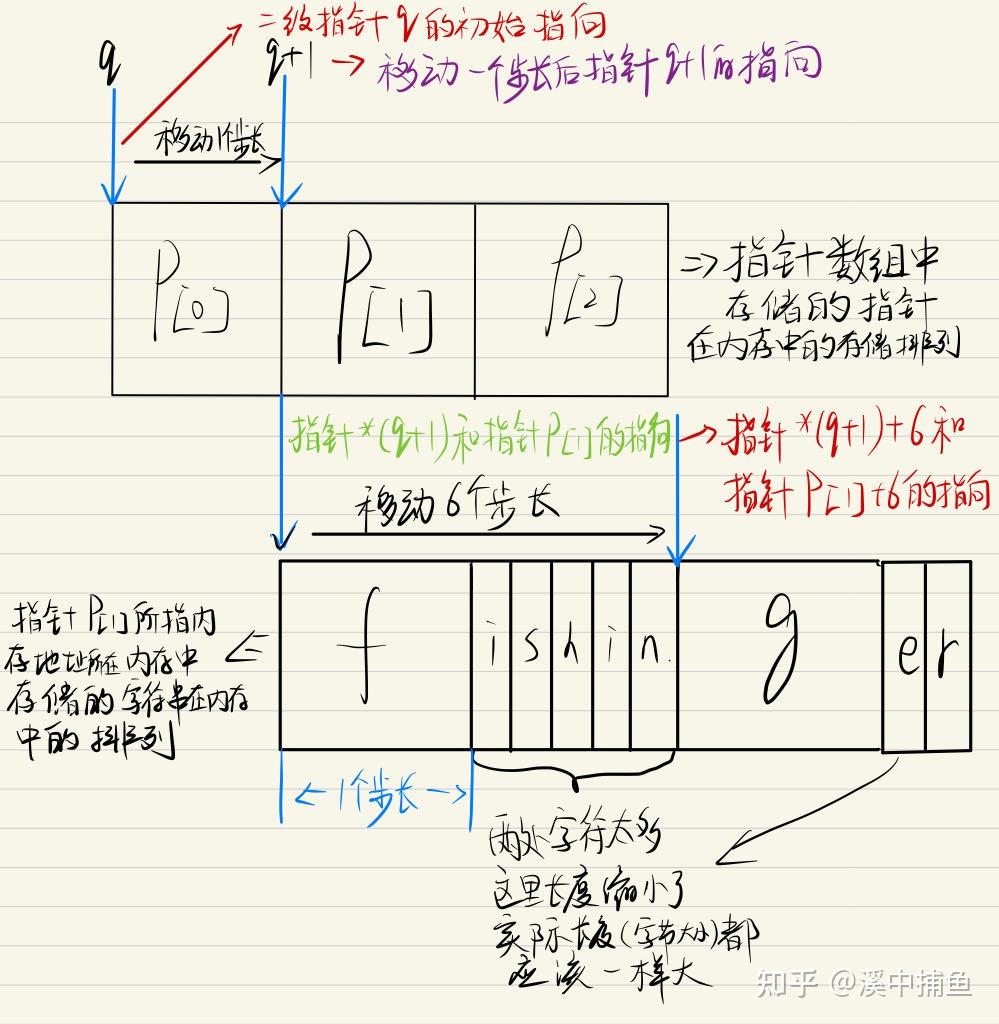 二级指针q的初始指向
q
q+1 → 移动一个步长后指针q+1的指向
移动1个步长
P[0]
P[1]
P[2]
⇒指针数组中
存储的指针
在内存中的存储排列
指针*(q+1)和指针P[1]的指向
→指针*(q+1)+6和
指针P[1]+6的指向
移动6个步长
f i s h i n g e r
指针P[1]所指内
存地址所在内存中
存储的字符串在内存
中的排列
←1个步长→
两处字符太多
这里长度缩小了
实际长度(字节大小)都
应该一样大
知乎 @溪中捕鱼